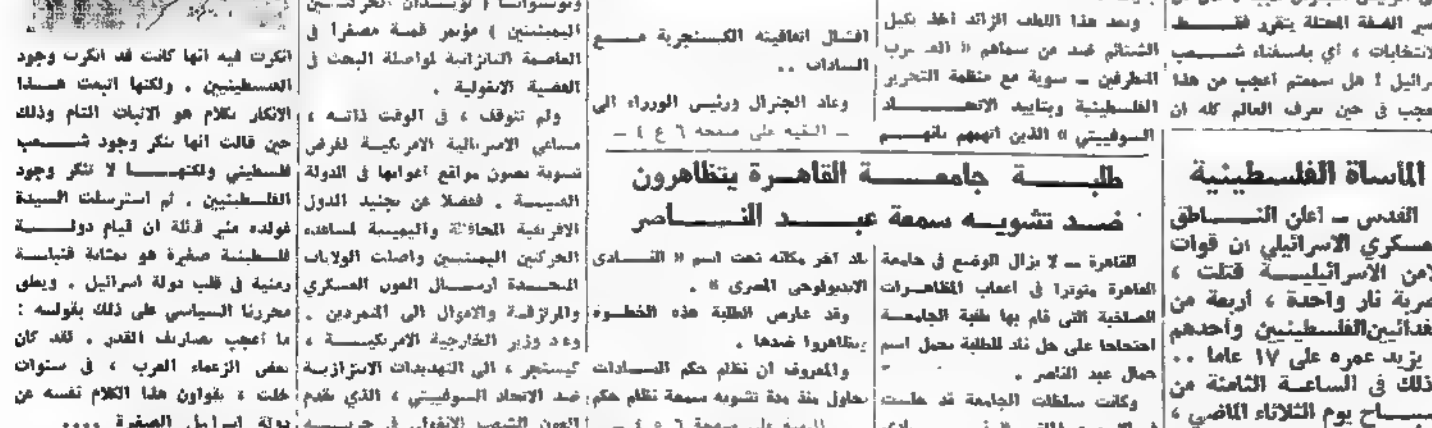 المأساة الفلسطينية
القدس ــ اعلن الناطق
العسكري الاسرائيلي ان قوات
الامن الاسرائيلية قتلت ،
بضربة نار واحدة ، أربعة من
الفدائيين الفلسطينيين وأحدهم
يزيد عمره على ١٧ عاما ..
وذلك في الساعة الثامنة من
صباح يوم الثلاثاء الماضي ،
وبعد هذا اللطف الزائد اخذ بكيل
الشتائم ضد من سماهم « العرب
المتطرفين ــ سوية مع منظمة التحرير
الفلسطينية وبتاييد الاتحاد
السوفييتي » الذين اتهمهم بانهم
افشال اتفاقيته الكسنجرية مع
السادات ..
وعاد الجنرال ورئيس الوزراء الى
ــ البقية على صفحة ٦ ع ٤ ــ
طلبة جامعة القاهرة يتظاهرون
ضد تشويه سمعة عبد الناصر
القاهرة ــ لا يزال الوضع في جامعة
القاهرة متوترا في اعقاب المظاهرات
الصاخبة التي قام بها طلبة الجامعة
احتجاجا على حل ناد للطلبة يحمل اسم
جمال عبد الناصر .
وكانت سلطات الجامعة قد حلت
ناد آخر مكانه تحت اسم « النادى
الايديولوجى المصرى » .
وقد عارض الطلبة هذه الخطوة
وتظاهروا ضدها .
والمعروف ان نظام حكم السادات
يحاول منذ مدة تشويه سمعة نظام حكم
اليمينيين ) مؤتمر قمة مصغرا في
العاصمة التانزانية لمواصلة البحث في
القضية الانغولية .
ولم تتوقف ، في الوقت ذاته ،
مساعي الامبريالية الامريكية لفرض
تسوية تصون مواقع اعوانها في الدولة
الافريقية المحافظة واليمينية لمساعدة
الحركتين اليمينيتين واصلت الولايات
المتحدة ارسال العون العسكري
والمرتزقة والاموال الى المتمردين .
وعمد وزير الخارجية الامريكية ،
كيسنجر ، الى التهديدات الابتزازية
ضد الاتحاد السوفييتي ، الذي يقدم
انكرت فيه انها كانت قد انكرت وجود
الفلسطينيين . ولكنها اتبعت هذا
الانكار بكلام هو الاثبات التام وذلك
حين قالت انها تنكر وجود شعب
فلسطيني ولكنها لا تنكر وجود
الفلسطينيين . ثم استرسلت السيدة
غولده مئير قائلة ان قيام دولة
فلسطينية صغيرة هو بمثابة قنبلة
زمنية في قلب دولة اسرائيل . ويعلق
محررنا السياسي على ذلك بقوله :
ما أعجب تصاريف القدر . لقد كان
بعض الزعماء العرب ، في سنوات
خلت ، يقولون هذا الكلام نفسه عن
دولة اسرائيل الصغيرة ....